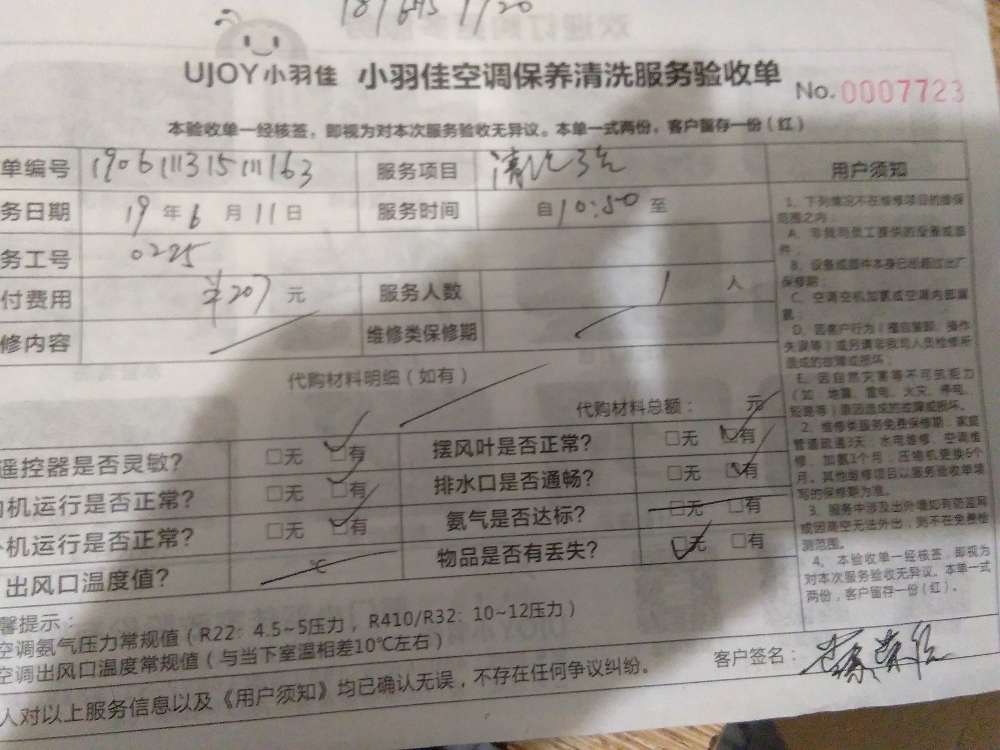 UJOY小羽佳 小羽佳空调保养清洗服务验收单 No.0007723
本验收单一经核签,即视为对本次服务验收无异议。本单一式两份,客户留存一份(红)
单编号 服务项目
务日期 19年6月11日 服务时间 自10:50至
务工号 0225
付费用 ¥207元 服务人数 1人
修内容 维修类保修期
代购材料明细(如有)
代购材料总额: 元
遥控器是否灵敏? □无 □有 摆风叶是否正常? □无 □有
机运行是否正常? □无 □有 排水口是否通畅? □无 □有
机运行是否正常? □无 □有 氨气是否达标? □无 □有
出风口温度值? ℃ 物品是否有丢失? □无 □有
馨提示:
空调氨气压力常规值(R22:4.5~5压力,R410/R32:10~12压力)
空调出风口温度常规值(与当下室温相差10℃左右)
人对以上服务信息以及《用户须知》均已确认无误,不存在任何争议纠纷。
客户签名:
用户须知
1、下列情况不在维修项目的维保
范围之内:
A、非我司员工提供的设备或部
件;
B、设备或部件本身已超过出厂
保修期;
C、空调空机加氨或空调内部漏
氨;
D、因客户行为(擅自装卸、操作
失误等)或另请非我司人员检修所
造成的故障或损坏;
E、因自然灾害等不可抗拒力
(如:地震、雷电、火灾、停电、
短路等)原因造成的故障或损坏。
2、维修类服务免费保修期:家庭
管道疏通3天,水电维修、空调维
修、加氨1个月,压缩机更换6个
月。其他维修项目以服务验收单填
写的保修期为准。
3、服务中涉及出外墙如有防盗网
或因高空无法外出,则不在免费检
测范围。
4、本验收单一经核签,即视为
对本次服务验收无异议。本单一式
两份,客户留存一份(红)。